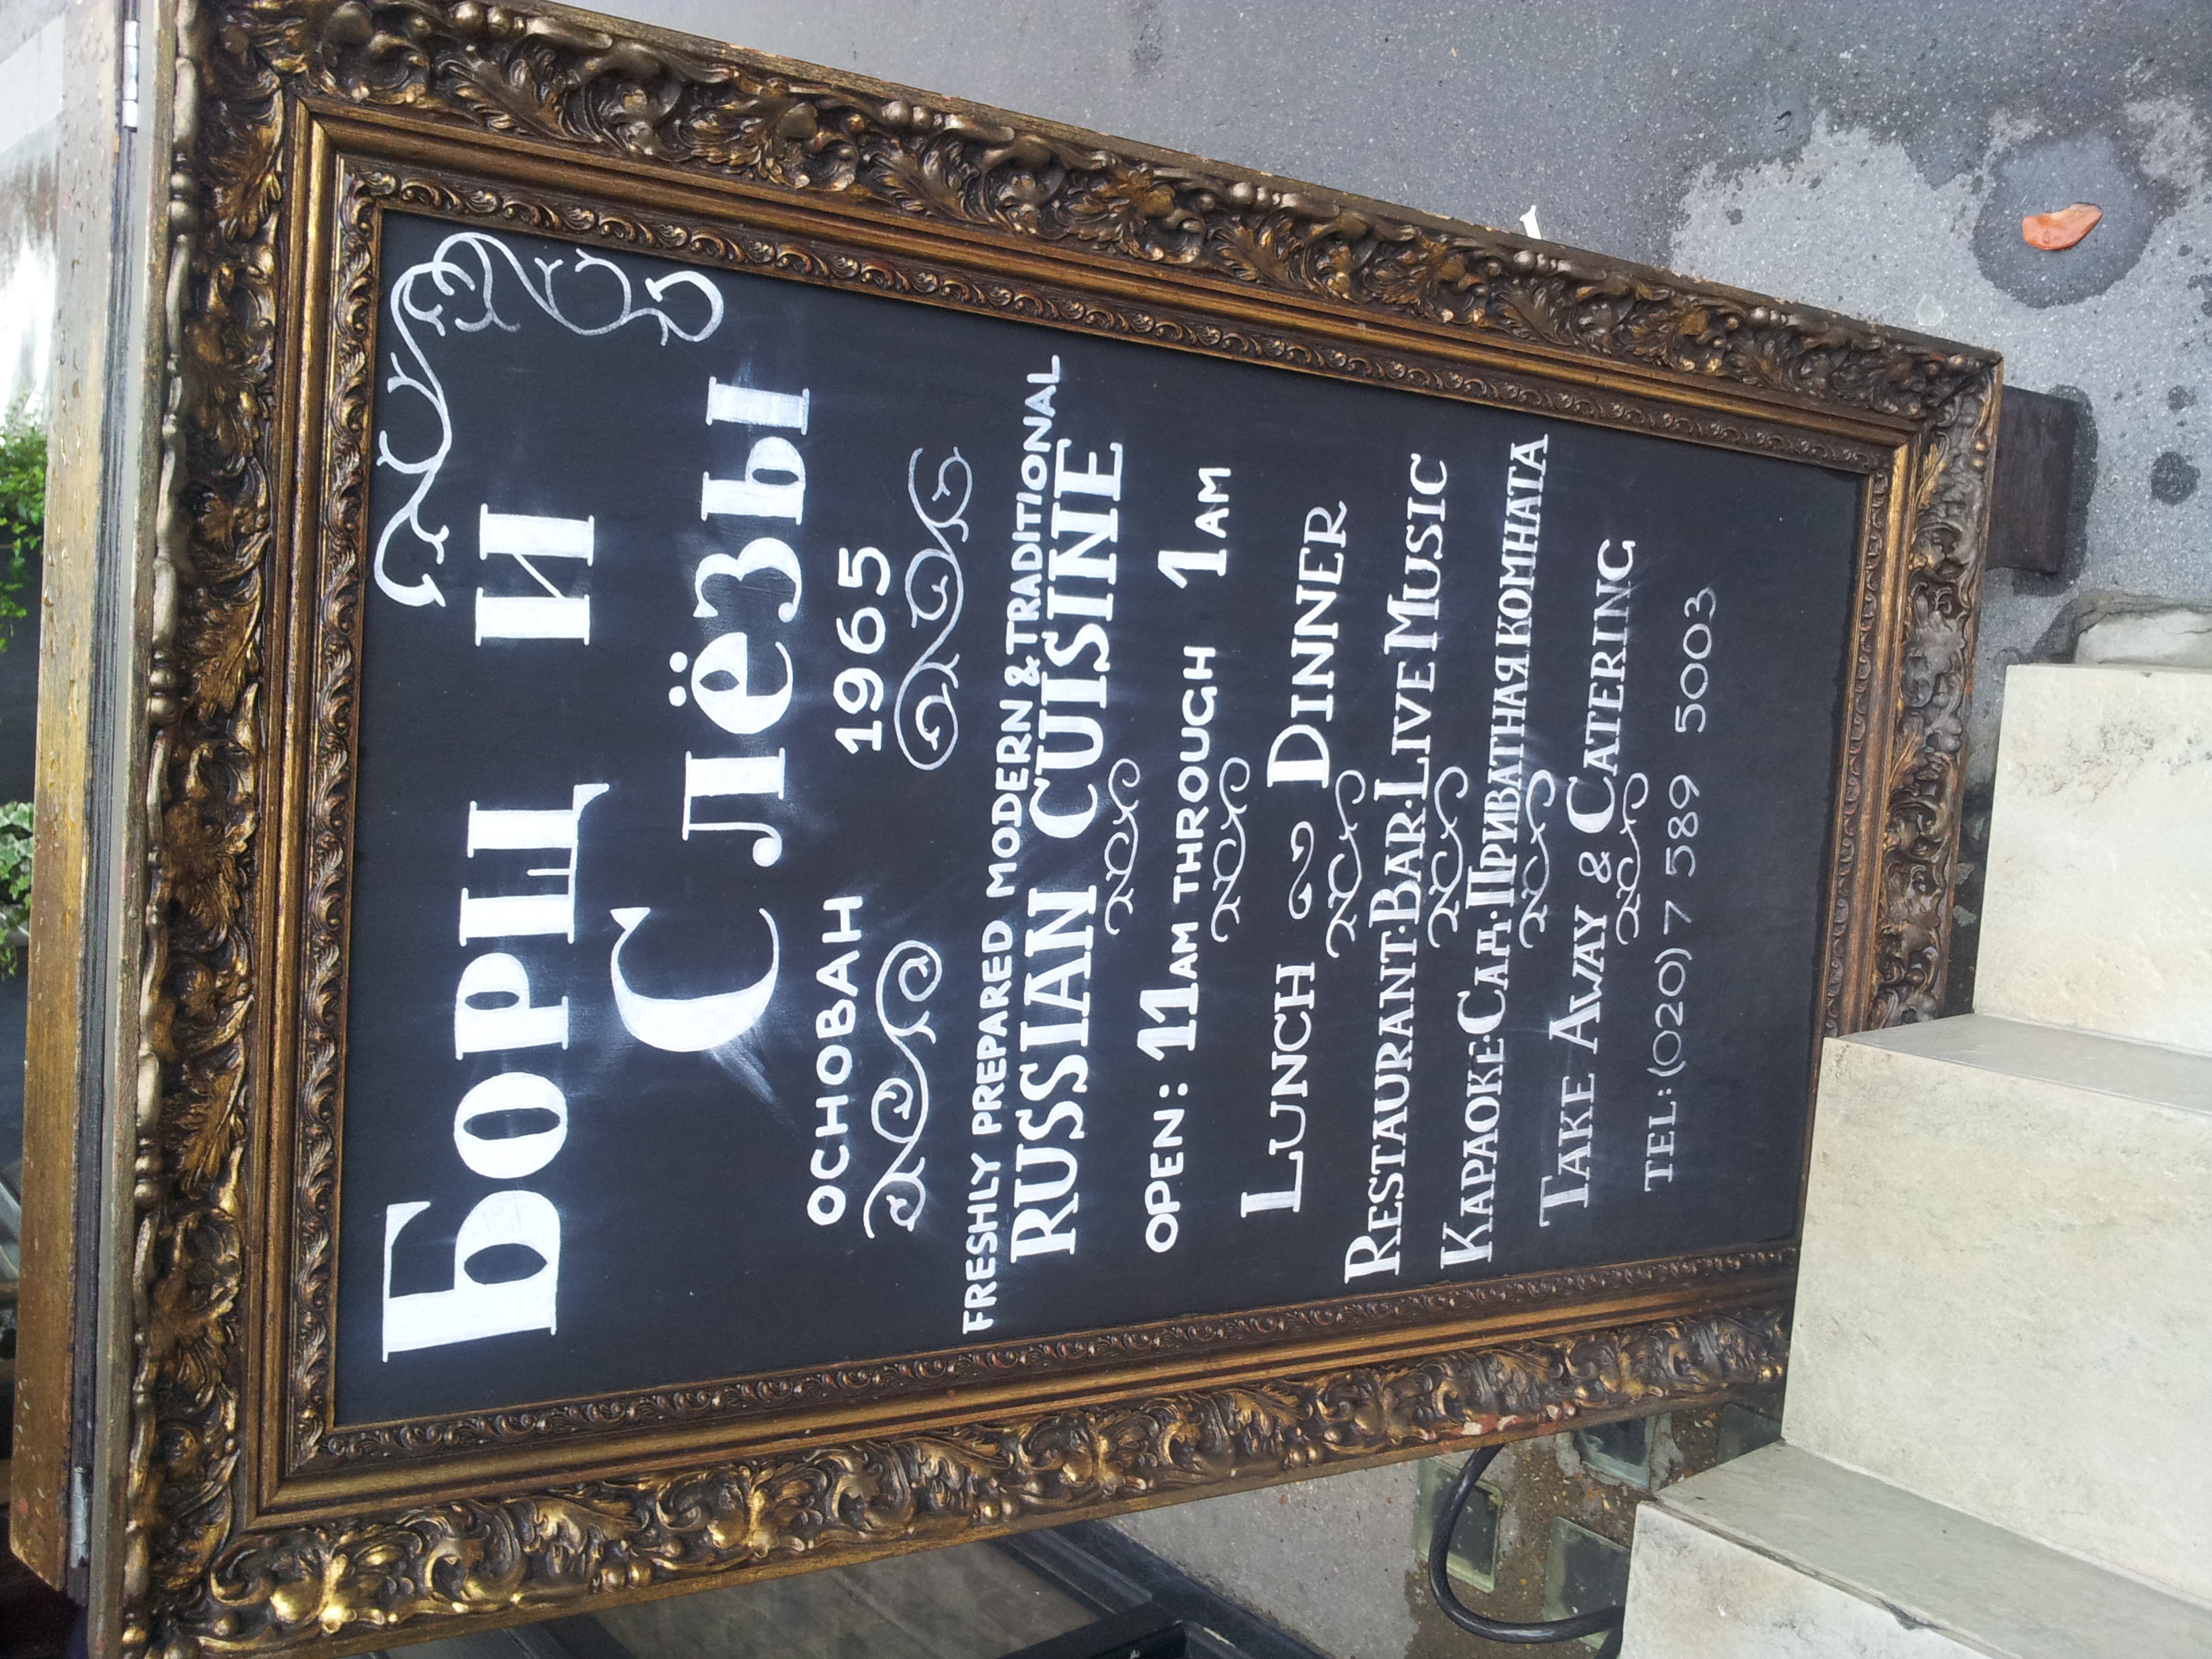 Борщ и
Слёзы
ОСНОВАН 1965
FRESHLY PREPARED MODERN & TRADITIONAL
RUSSIAN CUISINE
OPEN: 11AM THROUGH 1AM
LUNCH ~ DINNER
RESTAURANT·BAR·LIVE MUSIC
КАРАОКЕ·САД·ПРИВАТНАЯ КОМНАТА
TAKE AWAY & CATERING
TEL: (020) 7 589 5003